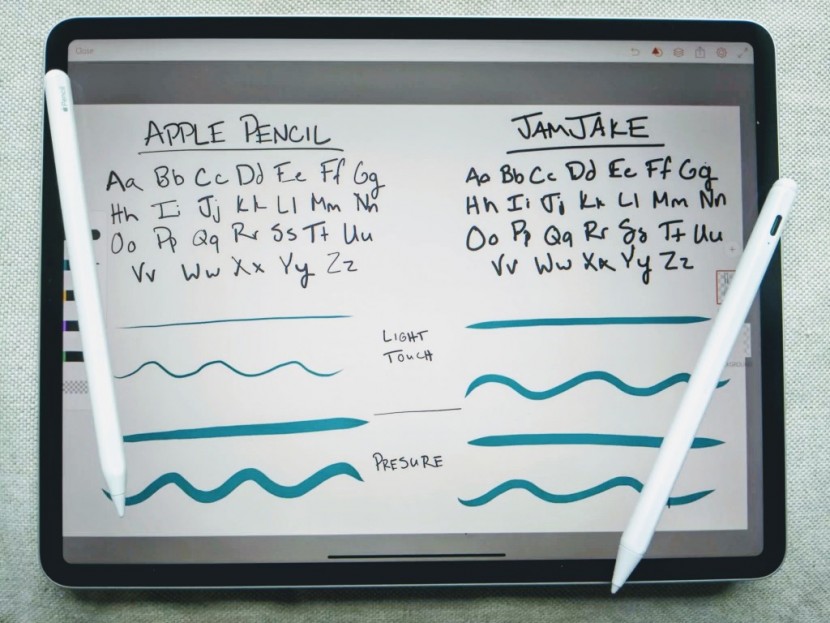 Close
Pencil
APPLE PENCIL
Aa Bb Cc Dd Ee Ff Gg
Hh Ii Jj Kk Ll Mm Nn
Oo Pp Qq Rr Ss Tt Uu
Vv Ww Xx Yy Zz
JAMJAKE
Aa Bb Cc Dd Ee Ff Gg
Hh Ii Jj Kk Ll Mm Nn
Oo Pp Qq Rr Ss Tt Uu
Vv Ww Xx Yy Zz
LIGHT
TOUCH
PRESURE